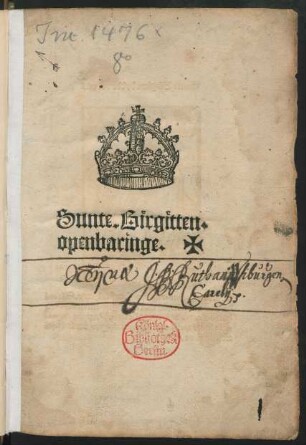 Inc 1476
8°
Sunte. Birgitten.
openbaringe. ✠
Königl.
Bibliothek
Berlin